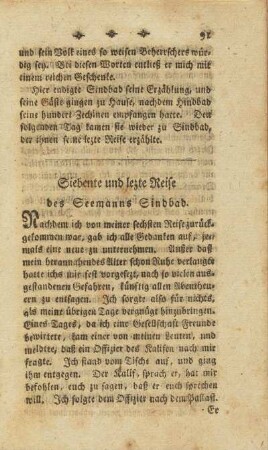 91
und sein Volk eines so weisen Beherrschers wür-
dig sey. Bei diesen Worten entließ er mich mit
einem reichen Geschenke.
Hier endigte Sindbad seine Erzählung, und
seine Gäste gingen zu Hause, nachdem Hindbad
seine hundert Zechinen empfangen hatte. Den
folgenden Tag kamen sie wieder zu Sindbad,
der ihnen seine lezte Reise erzählte.
Siebente und lezte Reise
des Seemanns Sindbad.
Nachdem ich von meiner sechsten Reise zurück-
gekommen war, gab ich alle Gedanken auf, je-
mals eine neue zu unternehmen. Außer daß
mein herannahendes Alter schon Ruhe verlangte
hatte ichs mir fest vorgesezt, nach so vielen aus-
gestandenen Gefahren, künftig allen Abentheu-
ern zu entsagen. Ich sorgte also für nichts,
als meine übrigen Tage vergnügt hinzubringen.
Eines Tages, da ich eine Gesellschaft Freunde
bewirtete, kam einer von meinen Leuten, und
meldete, daß ein Offizier des Kalifen nach mir
fragte. Ich stand vom Tische auf, und ging
ihm entgegen. Der Kalif, sprach er, hat mir
befohlen, euch zu sagen, daß er euch sprechen
will. Ich folgte dem Offizier nach dem Pallast.
Er